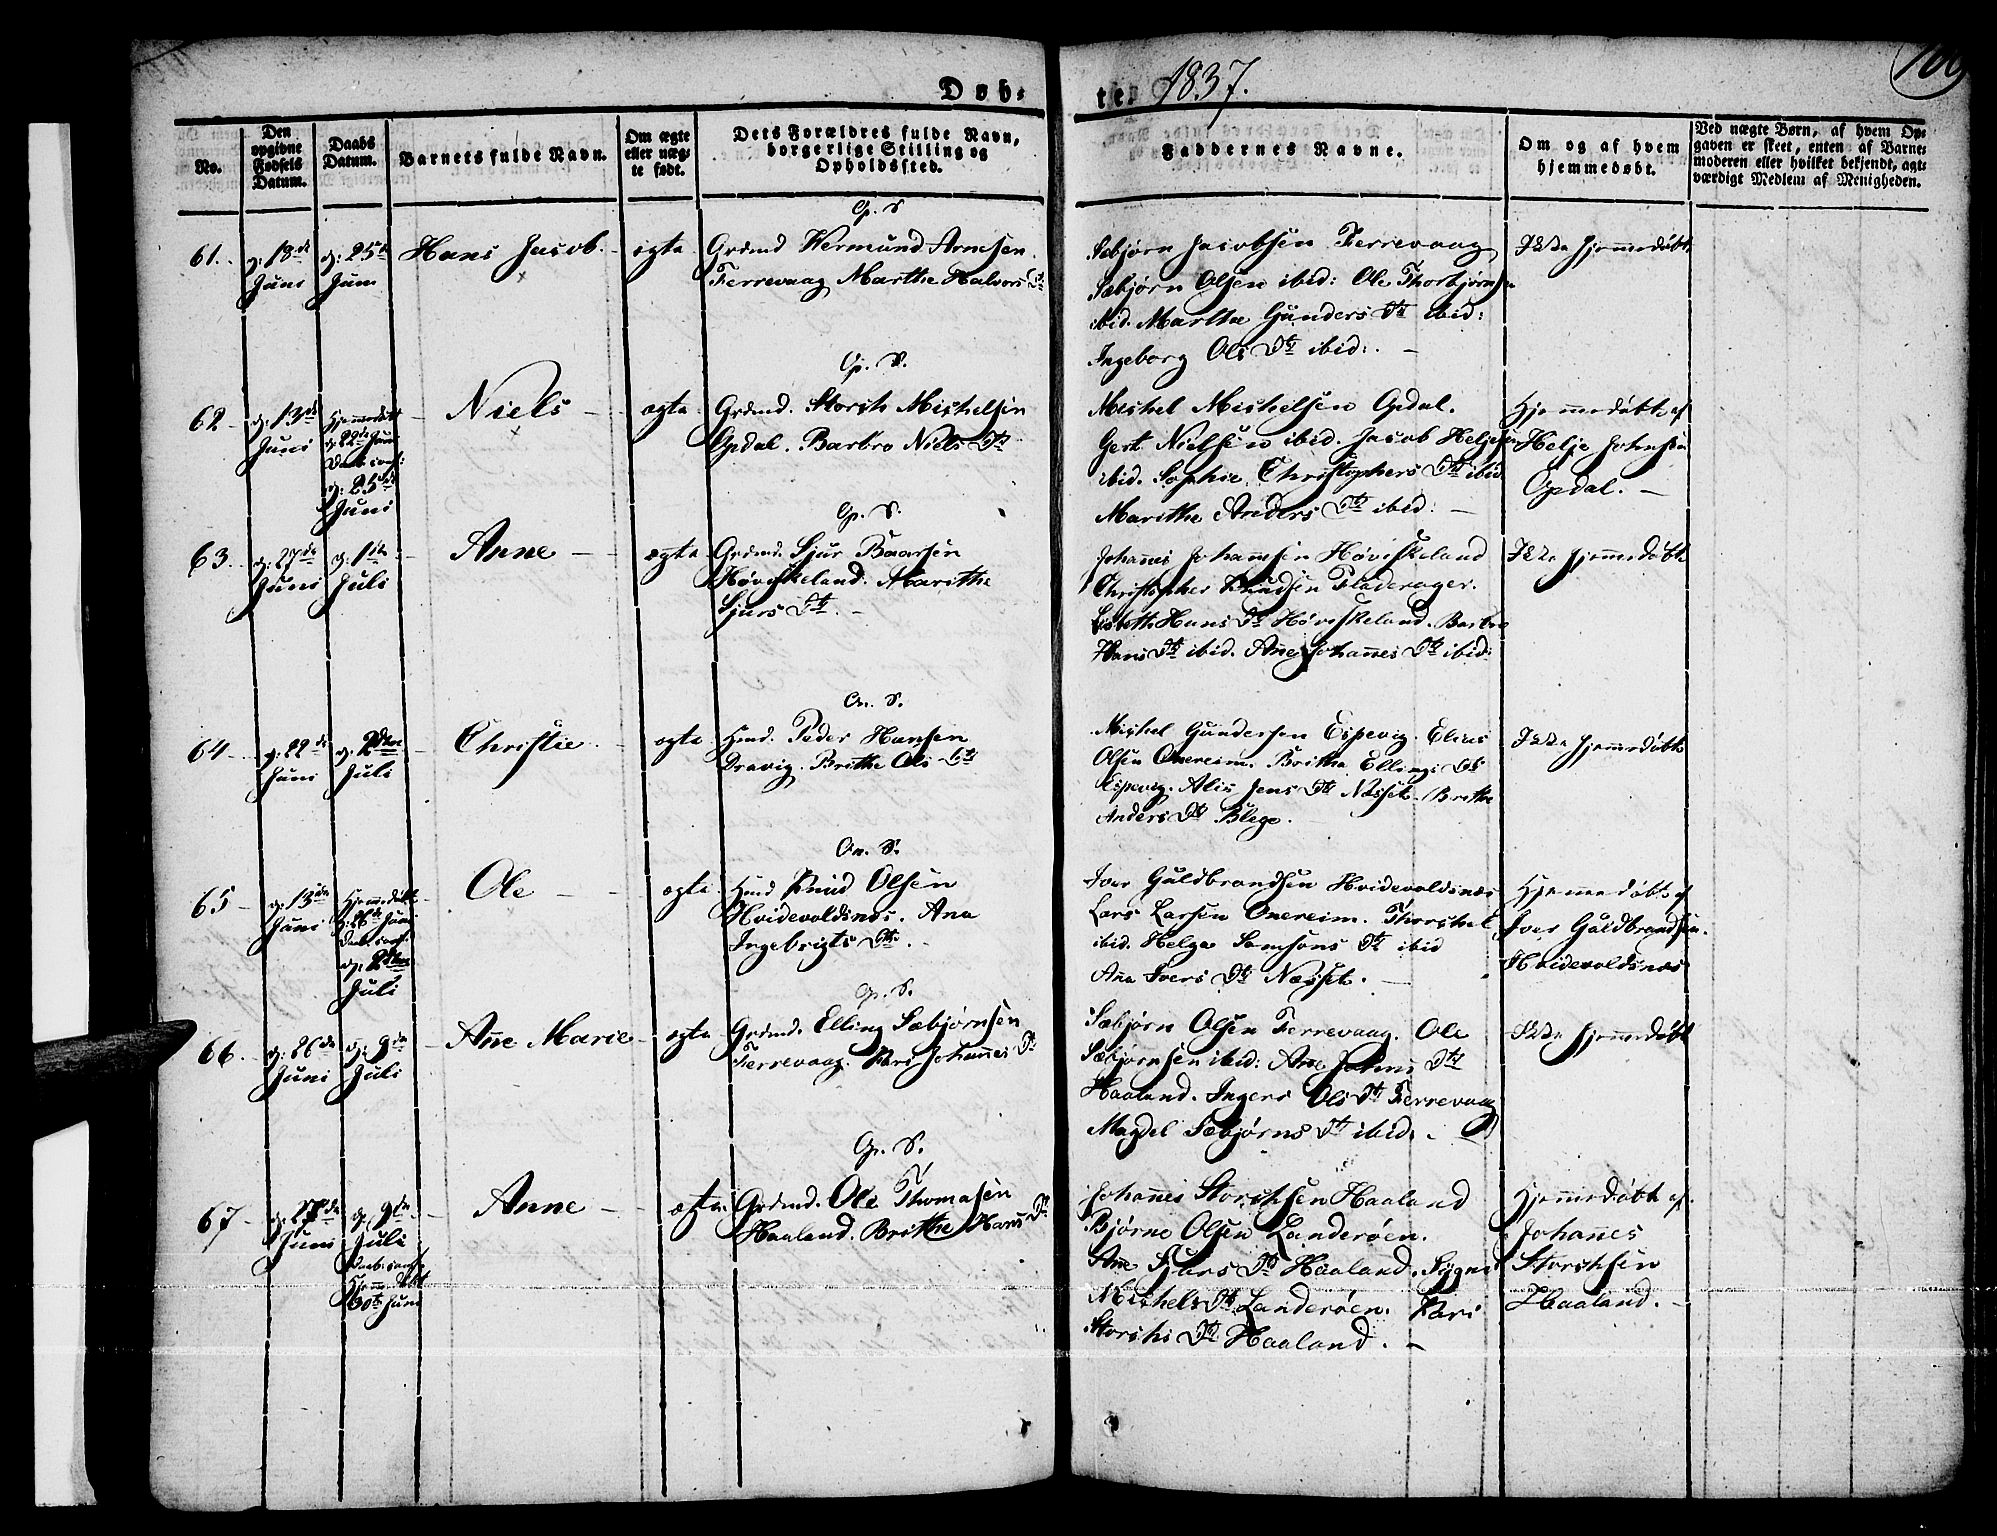 Døb-
te. 1837.
No.
Den
opgivne
Fødsels
Datum.
Daabs
Datum.
Barnets fulde Navn.
Om ægte
eller uæg-
te født.
Dets Forældres fulde Navn,
borgerlige Stilling og
Opholdssted.
Faddernes Navne.
Om og af hvem
hjemmedøbt.
Ved uægte Børn, af hvem Op-
gaven er skeet, enten af Barne-
moderen eller hvilket bekjendt, agt-
værdigt Medlem af Menigheden.
61.
d: 18de
Juni
d: 25de
Juni
Hans Jacob.
ægte
Gp. S.
Grdmd Vermund Arnesen
Ferrevaag Marthe Halvors Dt
Sæbjørn Jacobsen Ferrevaag
Sæbjørn Olsen ibid: Ole Thorbjørns
ibid. Marthe Gunders Dtr ibid:
Ingeborg Ols Dtr ibid: -
Ikke hjemmedøbt
62 -
d: 13de
Juni
Hjemmedøbt
d: 22de Juni
Daab conf:
d: 25de
Juni
Niels -
ægte
Gp. S.
Grdmd. Storch Michelsen
Opdal. Barbro Niels Dtr
Michel Michelsen Opdal.
Gert Nielsen ibid. Jacob Heljesen
ibid. Sophie Christophers Dtr ibid
Marithe Anders Dtr ibid: -
Hjemmedøbt af
Helje Johnsen
Opdal. -
63.
d: 27de
Juni
d: 1de
Juli
Anne
ægte
Gp. S.
Grdmd. Sjur Baarsen
Høviskeland. Marithe
Sjurs Dtr. -
Johannes Johannesen Høviskeland
Christopher Knudsen Fladerager.
Lisbeth Hans Dtr Høviskeland. Barbro
Hans Dtr ibid. Anne Johannes Dtr ibid:
Ikke hjemmedøbt
64 -
d: 22de
Juni
d: 2den
Juli
Christie.
ægte
On. S.
Hmd. Peder Hansen
Dravig. Brithe Ols Dtr
Michel Gundersen Espevig. Elias
Olsen Onereim. Britha Ellings Dtr
Espevig. Alis Jens Dtr Næsset. Brithe
Anders Dtr Blege.
Ikke hjemmedøbt
65 -
d: 13de
Juni
Hjemmedøbt
d: 26de Juni
Daab conf:
d: 2den
Juli
Ole -
ægte
On. S.
Hmd Knud Olsen
Hvidevoldsnæs. Ana
Ingebrigts Dtr. -
Iver Guldbrandsen Hvidevoldsnæs
Lars Larsen Onereim. Thorchel
ibid. Helga Samsons Dtr ibid
Ana Ivers Dtr Næsset. -
Hjemmedøbt af
Iver Guldbrandsen
Hvidevoldsnæs
66.
d: 26de
Juni
d: 9de
Juli
Anne Marie -
ægte
Gp. S.
Grdmd. Elling Sæbjørnsen
Ferrevaag. Kari Johannes Dtr
Sæbjørn Olsen Ferrevaag. Ole
Sæbjørnsen ibid: Anne Johans Dtr
Haaland. Ingers Ols Dtr Ferrevaag
Magdel Sæbjørns Dtr ibid. -
Ikke hjemmedøbt
67 -
d: 27de
Juni
d: 9de
Juli
Daab conf:
Hjemmedøbt
30te Juni
Anne -
ægte
Gp. S.
Grdmd. Ole Thomasen
Haaland. Brithe Hans Dtr
Johannes Storchsen Haaland
Bjørne Olsen Landerøen.
Anne Sjurs Dtr Haaland. Sygni
Michels Dtr Landerøen. Kari
Storchs Dtr Haaland. -
Hjemmedøbt af
Johannes
Storchsen
Haaland. -